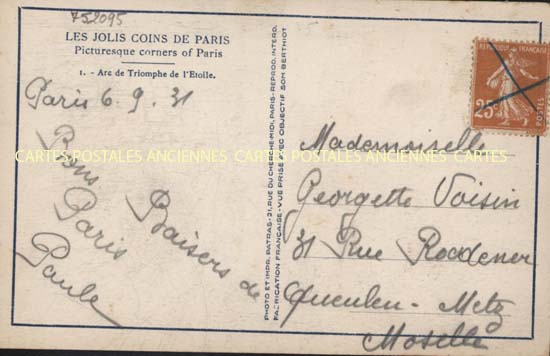 752095
LES JOLIS COINS DE PARIS
Picturesque corners of Paris
1. - Arc de Triomphe de l'Etoile.
Paris 6.9.31
Bons Baisers de
Paris
Paule
PHOTO ET IMPR. PATRAS-21, RUE DU CHERCHE-MIDI, PARIS-REPROD. INTERD.
FABRICATION FRANÇAISE-VUE PRISE AVEC OBJECTIF SOM BERTHIOT
REPUBLIQUE FRANÇAISE
25c
POSTES
Mademoiselle
Georgette Voisin
31 Rue
Queuleu - Metz
Moselle
CARTES POSTALES ANCIENNES CARTES POSTALES ANCIENNES CARTES